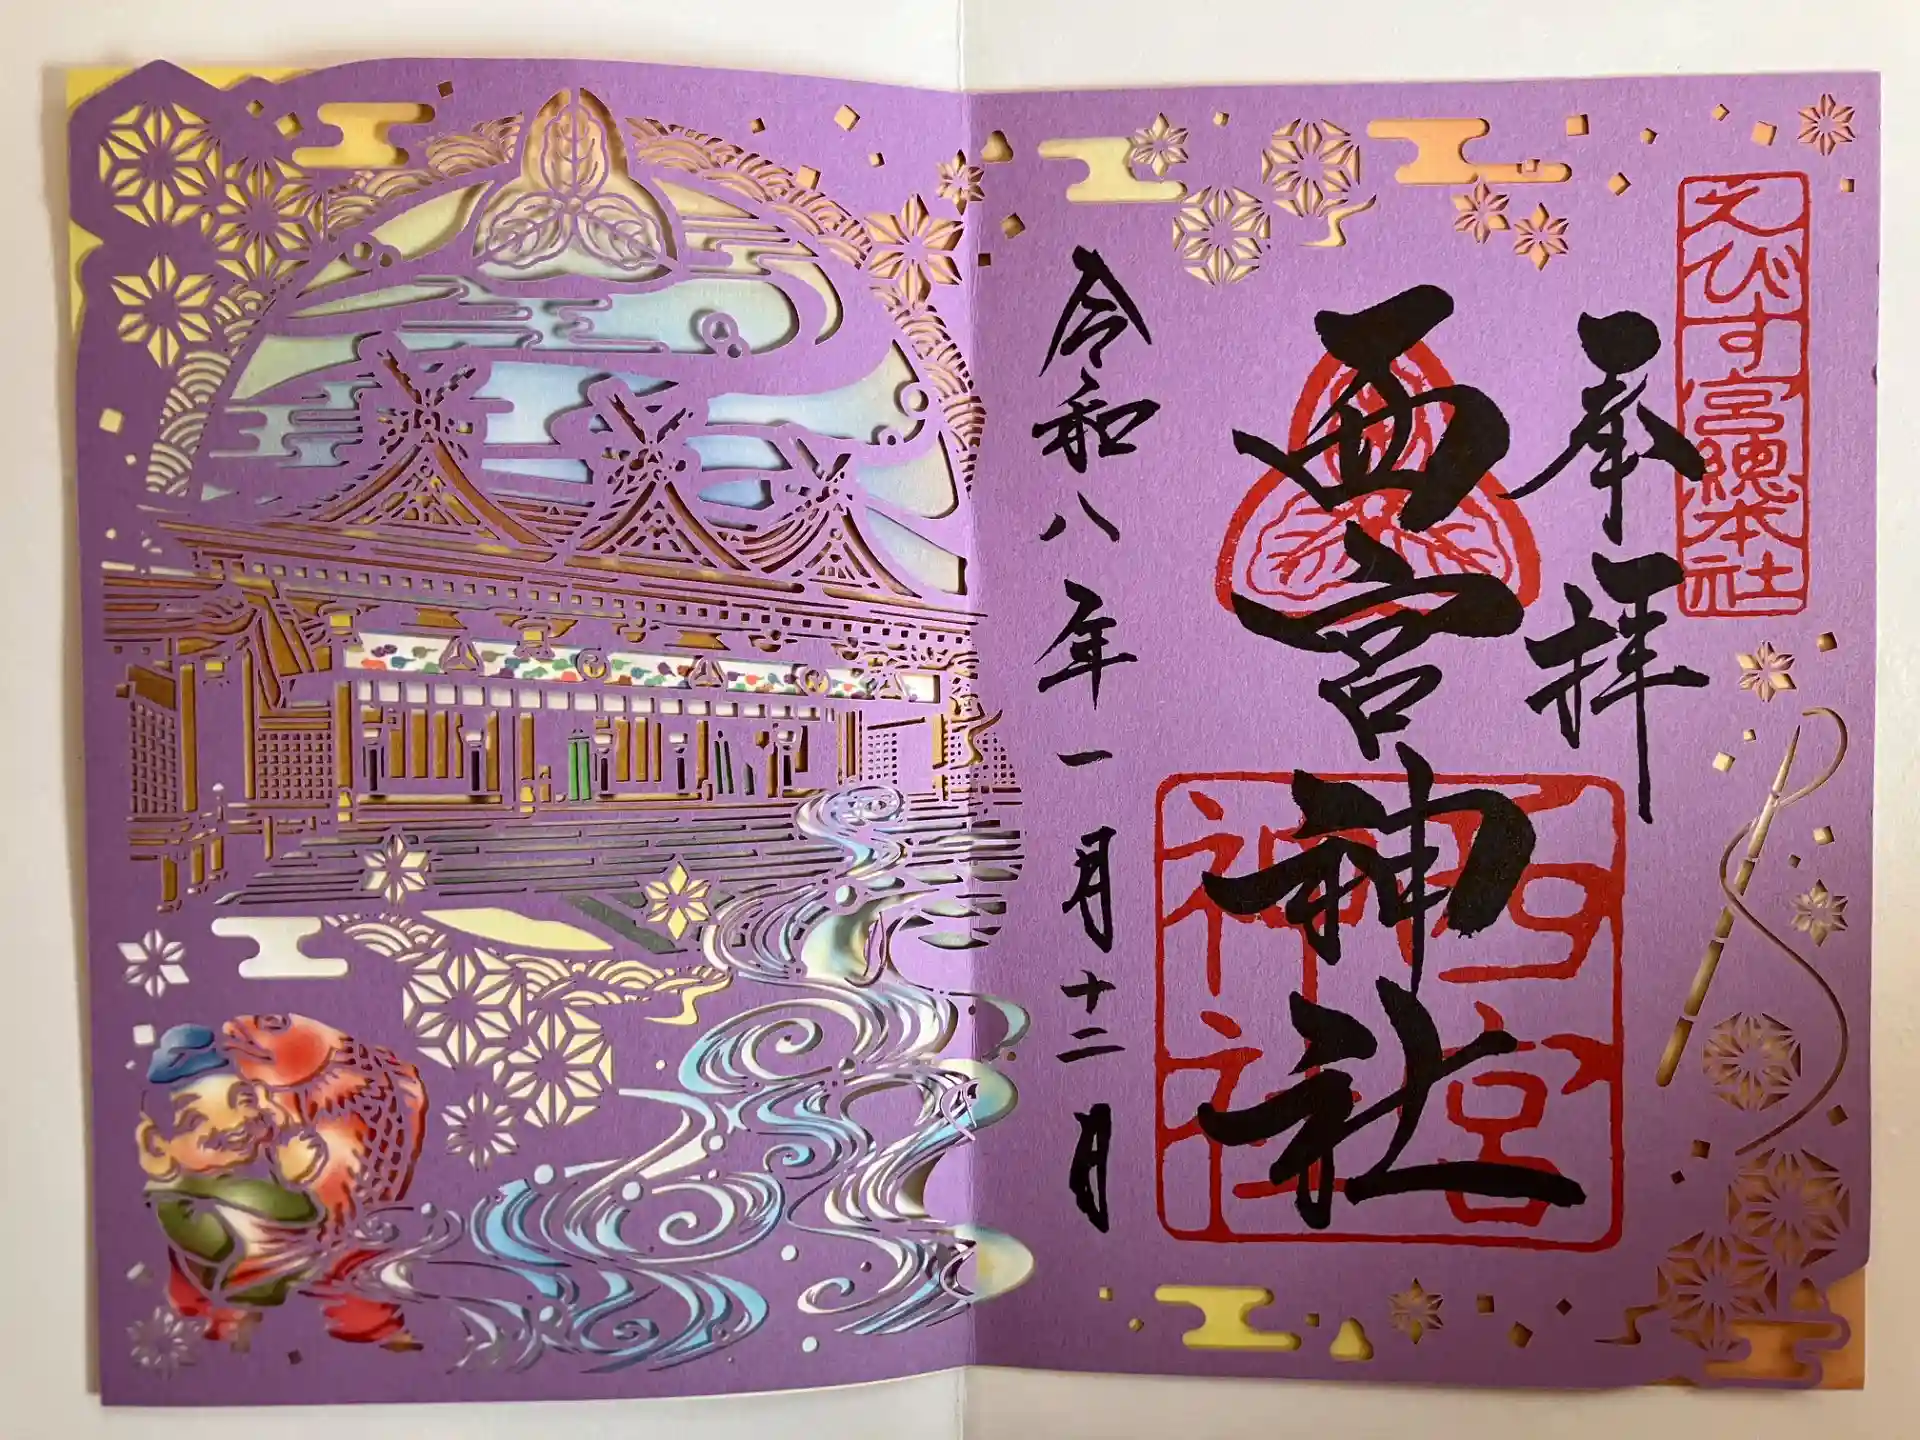 えびす宮總本社
奉拝
西宮神社
西宮神社
令和八年一月十二日